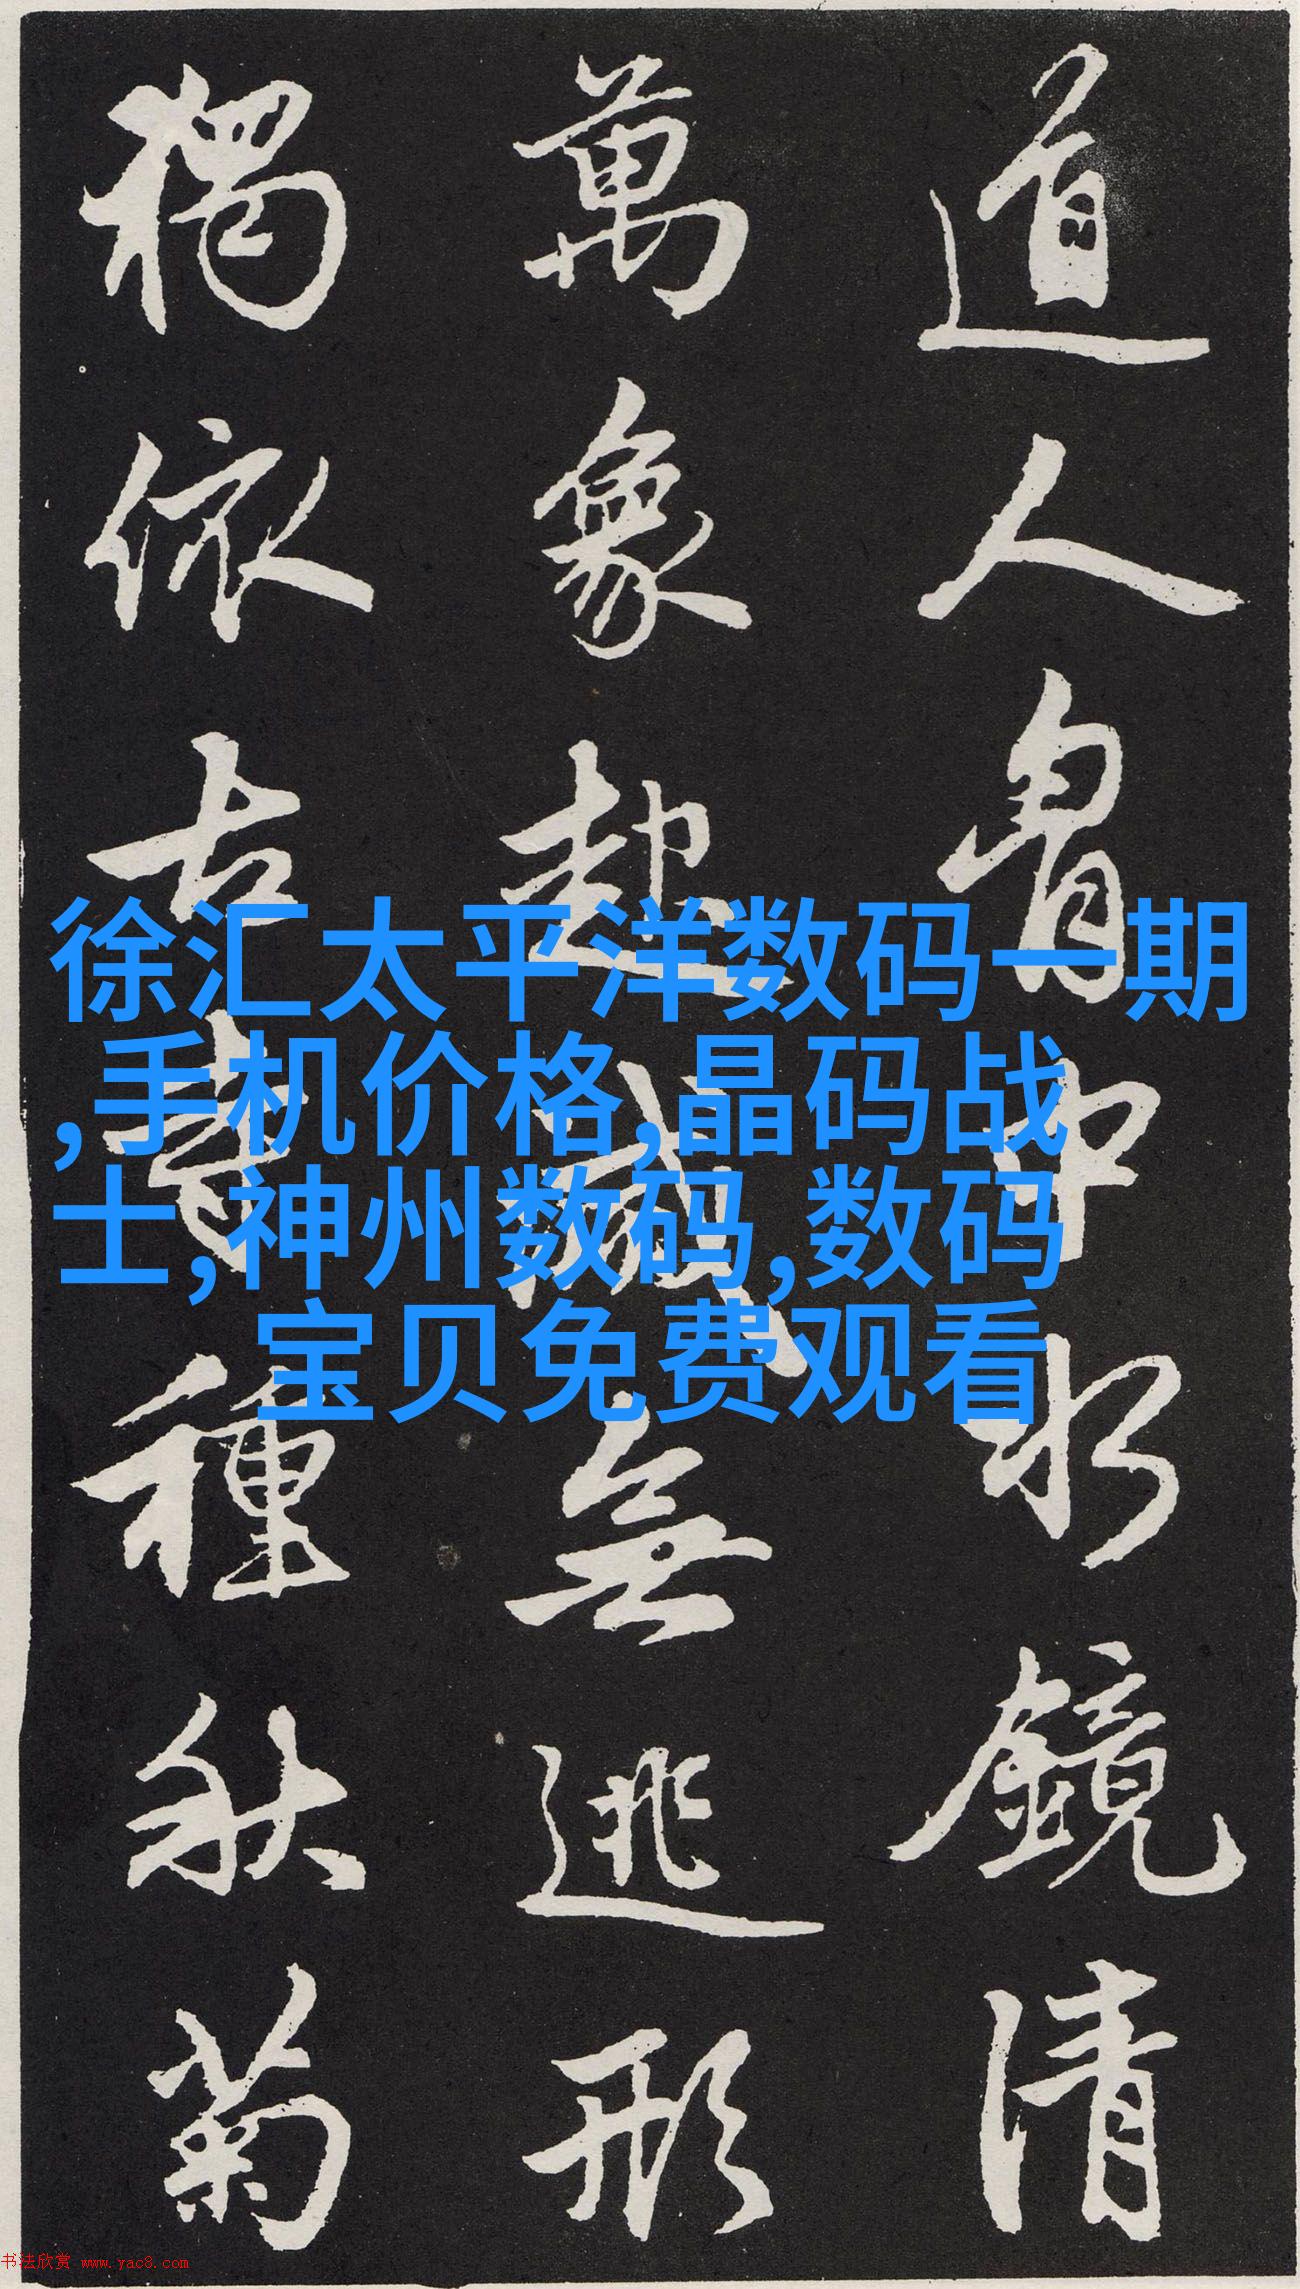 道人胷中水鏡清
萬象起滅無逃形
獨依古寺種秋菊
徐汇太平洋数码一期
,手机价格,晶码战
士,神州数码,数码
宝贝免费观看
书法欣赏 www.yac8.com